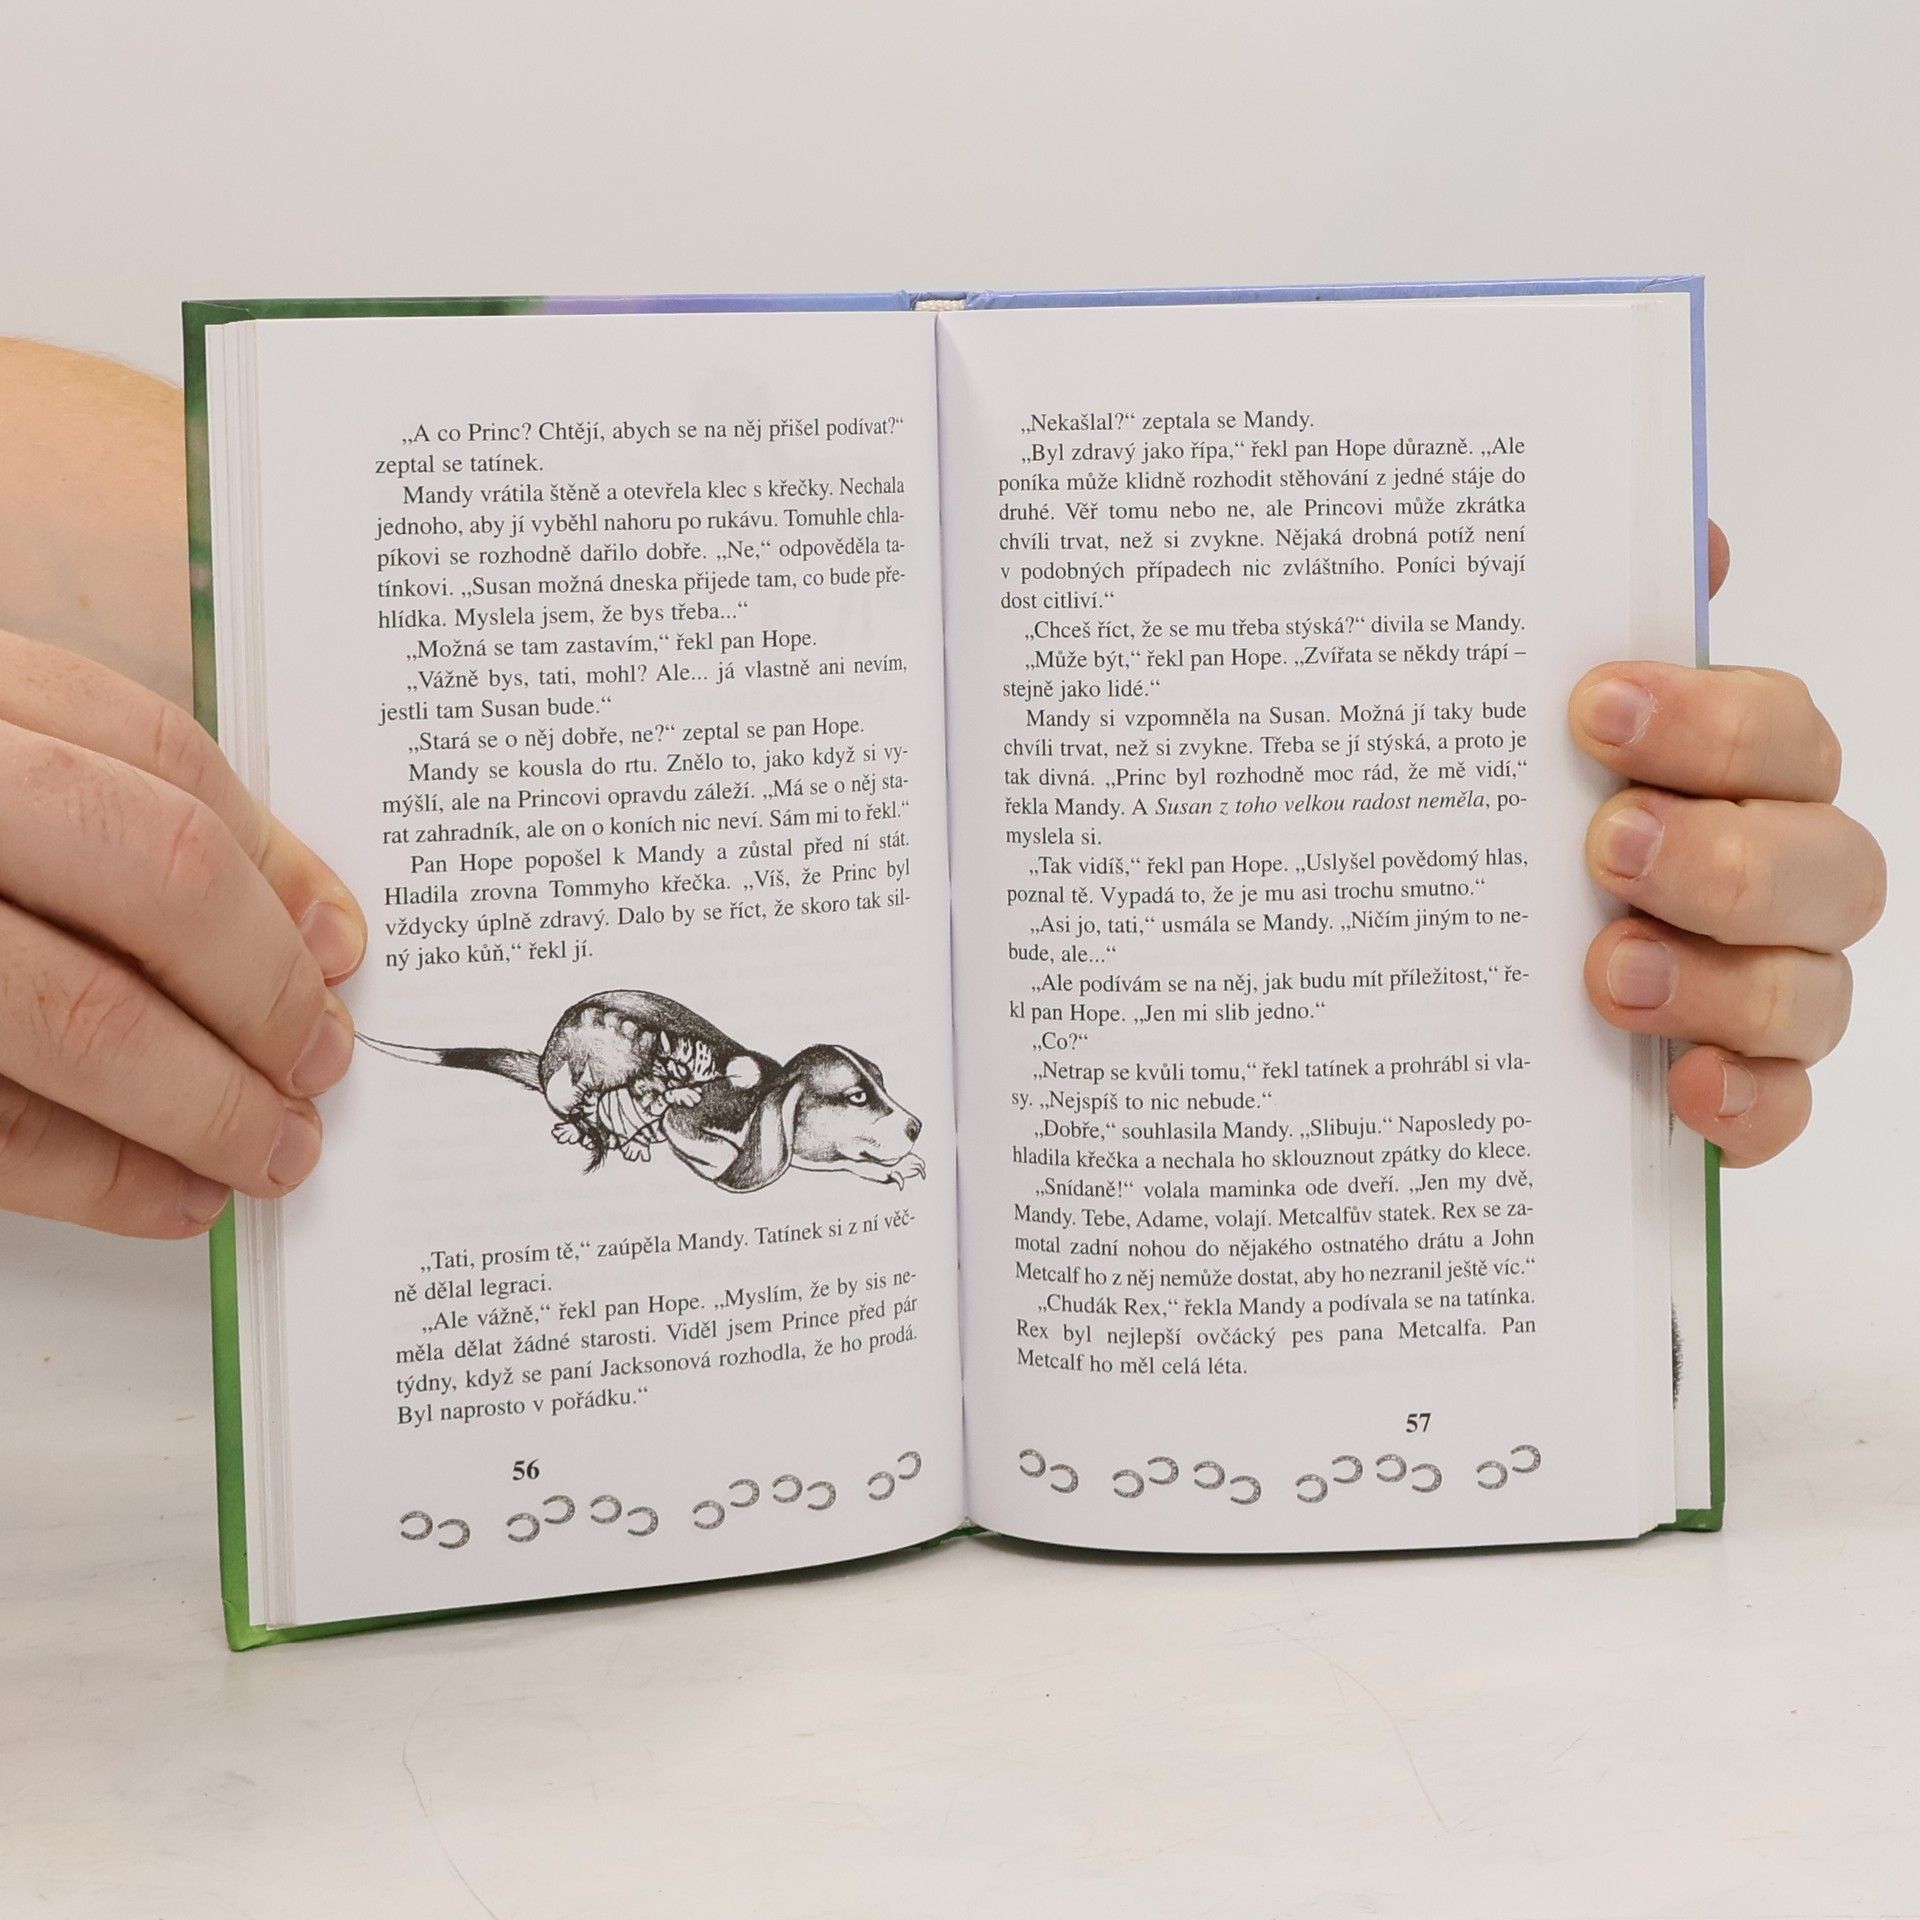 „A co Princ? Chtějí, abych se na něj přišel podívat?“
zeptal se tatínek.
Mandy vrátila štěně a otevřela klec s křečky. Nechala
jednoho, aby jí vyběhl nahoru po rukávu. Tomuhle chla-
píkovi se rozhodně dařilo dobře. „Ne,“ odpověděla ta-
tínkovi. „Susan možná dneska přijede tam, co bude pře-
hlídka. Myslela jsem, že bys třeba...“
„Možná se tam zastavím,“ řekl pan Hope.
„Vážně bys, tati, mohl? Ale... já vlastně ani nevím,
jestli tam Susan bude.“
„Stará se o něj dobře, ne?“ zeptal se pan Hope.
Mandy se kousla do rtu. Znělo to, jako když si vy-
mýšlí, ale na Princovi opravdu záleží. „Má se o něj sta-
rat zahradník, ale on o koních nic neví. Sám mi to řekl.“
Pan Hope popošel k Mandy a zůstal před ní stát.
Hladila zrovna Tommyho křečka. „Víš, že Princ byl
vždycky úplně zdravý. Dalo by se říct, že skoro tak sil-
ný jako kůň,“ řekl jí.
„Tati, prosím tě,“ zaúpěla Mandy. Tatínek si z ní věč-
ně dělal legraci.
„Ale vážně,“ řekl pan Hope. „Myslím, že by sis ne-
měla dělat žádné starosti. Viděl jsem Prince před pár
týdny, když se paní Jacksonová rozhodla, že ho prodá.
Byl naprosto v pořádku.“
56
„Nekašlal?“ zeptala se Mandy.
„Byl zdravý jako řípa,“ řekl pan Hope důrazně. „Ale
poníka může klidně rozhodit stěhování z jedné stáje do
druhé. Věř tomu nebo ne, ale Princovi může zkrátka
chvíli trvat, než si zvykne. Nějaká drobná potíž není
v podobných případech nic zvláštního. Poníci bývají
dost citliví.“
„Chceš říct, že se mu třeba stýská?“ divila se Mandy.
„Může být,“ řekl pan Hope. „Zvířata se někdy trápí –
stejně jako lidé.“
Mandy si vzpomněla na Susan. Možná jí taky bude
chvíli trvat, než si zvykne. Třeba se jí stýská, a proto je
tak divná. „Princ byl rozhodně moc rád, že mě vidí,“
řekla Mandy. A Susan z toho velkou radost neměla, po-
myslela si.
„Tak vidíš,“ řekl pan Hope. „Uslyšel povědomý hlas,
poznal tě. Vypadá to, že je mu asi trochu smutno.“
„Asi jo, tati,“ usmála se Mandy. „Ničím jiným to ne-
bude, ale...“
„Ale podívám se na něj, jak budu mít příležitost,“ ře-
kl pan Hope. „Jen mi slib jedno.“
„Co?“
„Netrap se kvůli tomu,“ řekl tatínek a prohrábl si vla-
sy. „Nejspíš to nic nebude.“
„Dobře,“ souhlasila Mandy. „Slibuju.“ Naposledy po-
hladila křečka a nechala ho sklouznout zpátky do klece.
„Snídaně!“ volala maminka ode dveří. „Jen my dvě,
Mandy. Tebe, Adame, volají. Metcalfův statek. Rex se za-
motal zadní nohou do nějakého ostnatého drátu a John
Metcalf ho z něj nemůže dostat, aby ho nezranil ještě víc.“
„Chudák Rex,“ řekla Mandy a podívala se na tatínka.
Rex byl nejlepší ovčácký pes pana Metcalfa. Pan
Metcalf ho měl celá léta.
57